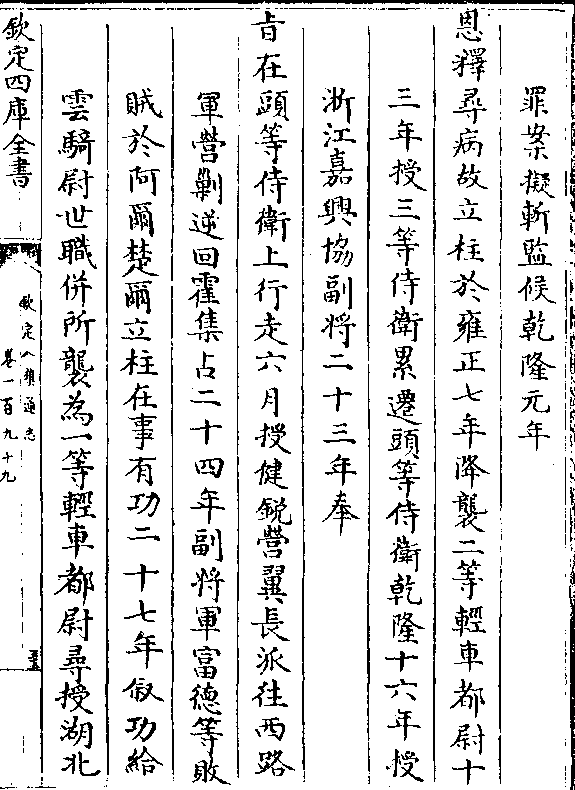 罪案擬斬監候乾隆元年
恩釋尋病故立柱於雍正七年降襲二等輕車都尉十
三年授三等侍衛累遷頭等侍衛乾隆十六年授
浙江嘉興協副將二十三年奉
旨在頭等侍衛上行走六月授健鋭營翼長派往西路
軍營剿逆回霍集占二十四年副將軍富德等敗
賊於阿爾楚爾立柱在事有功二十七年叙功給
雲騎尉世職併所襲為一等輕車都尉尋授湖北
欽定四庫全書
欽定八旗通志
卷一百九十九